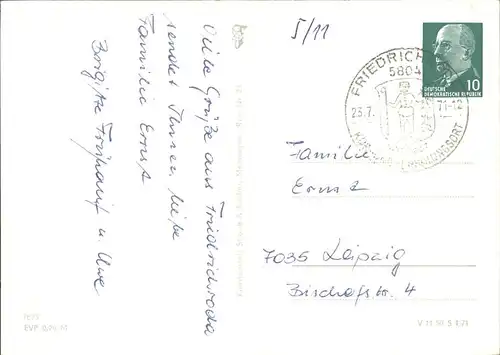 Viele Grüße aus Friedrichroda
sendet Ihnen liebe
Familie Ernst
Brigitte u. Uwe
5/11
FRIEDRICH
5804
23.7. 71-12
ERHOLUNGSORT
DEUTSCHE
DEMOKRATISCHE REPUBLIK
10
Familie
Ernst
7035 Leipzig
Bischofstr. 4
EVP
V 11 50